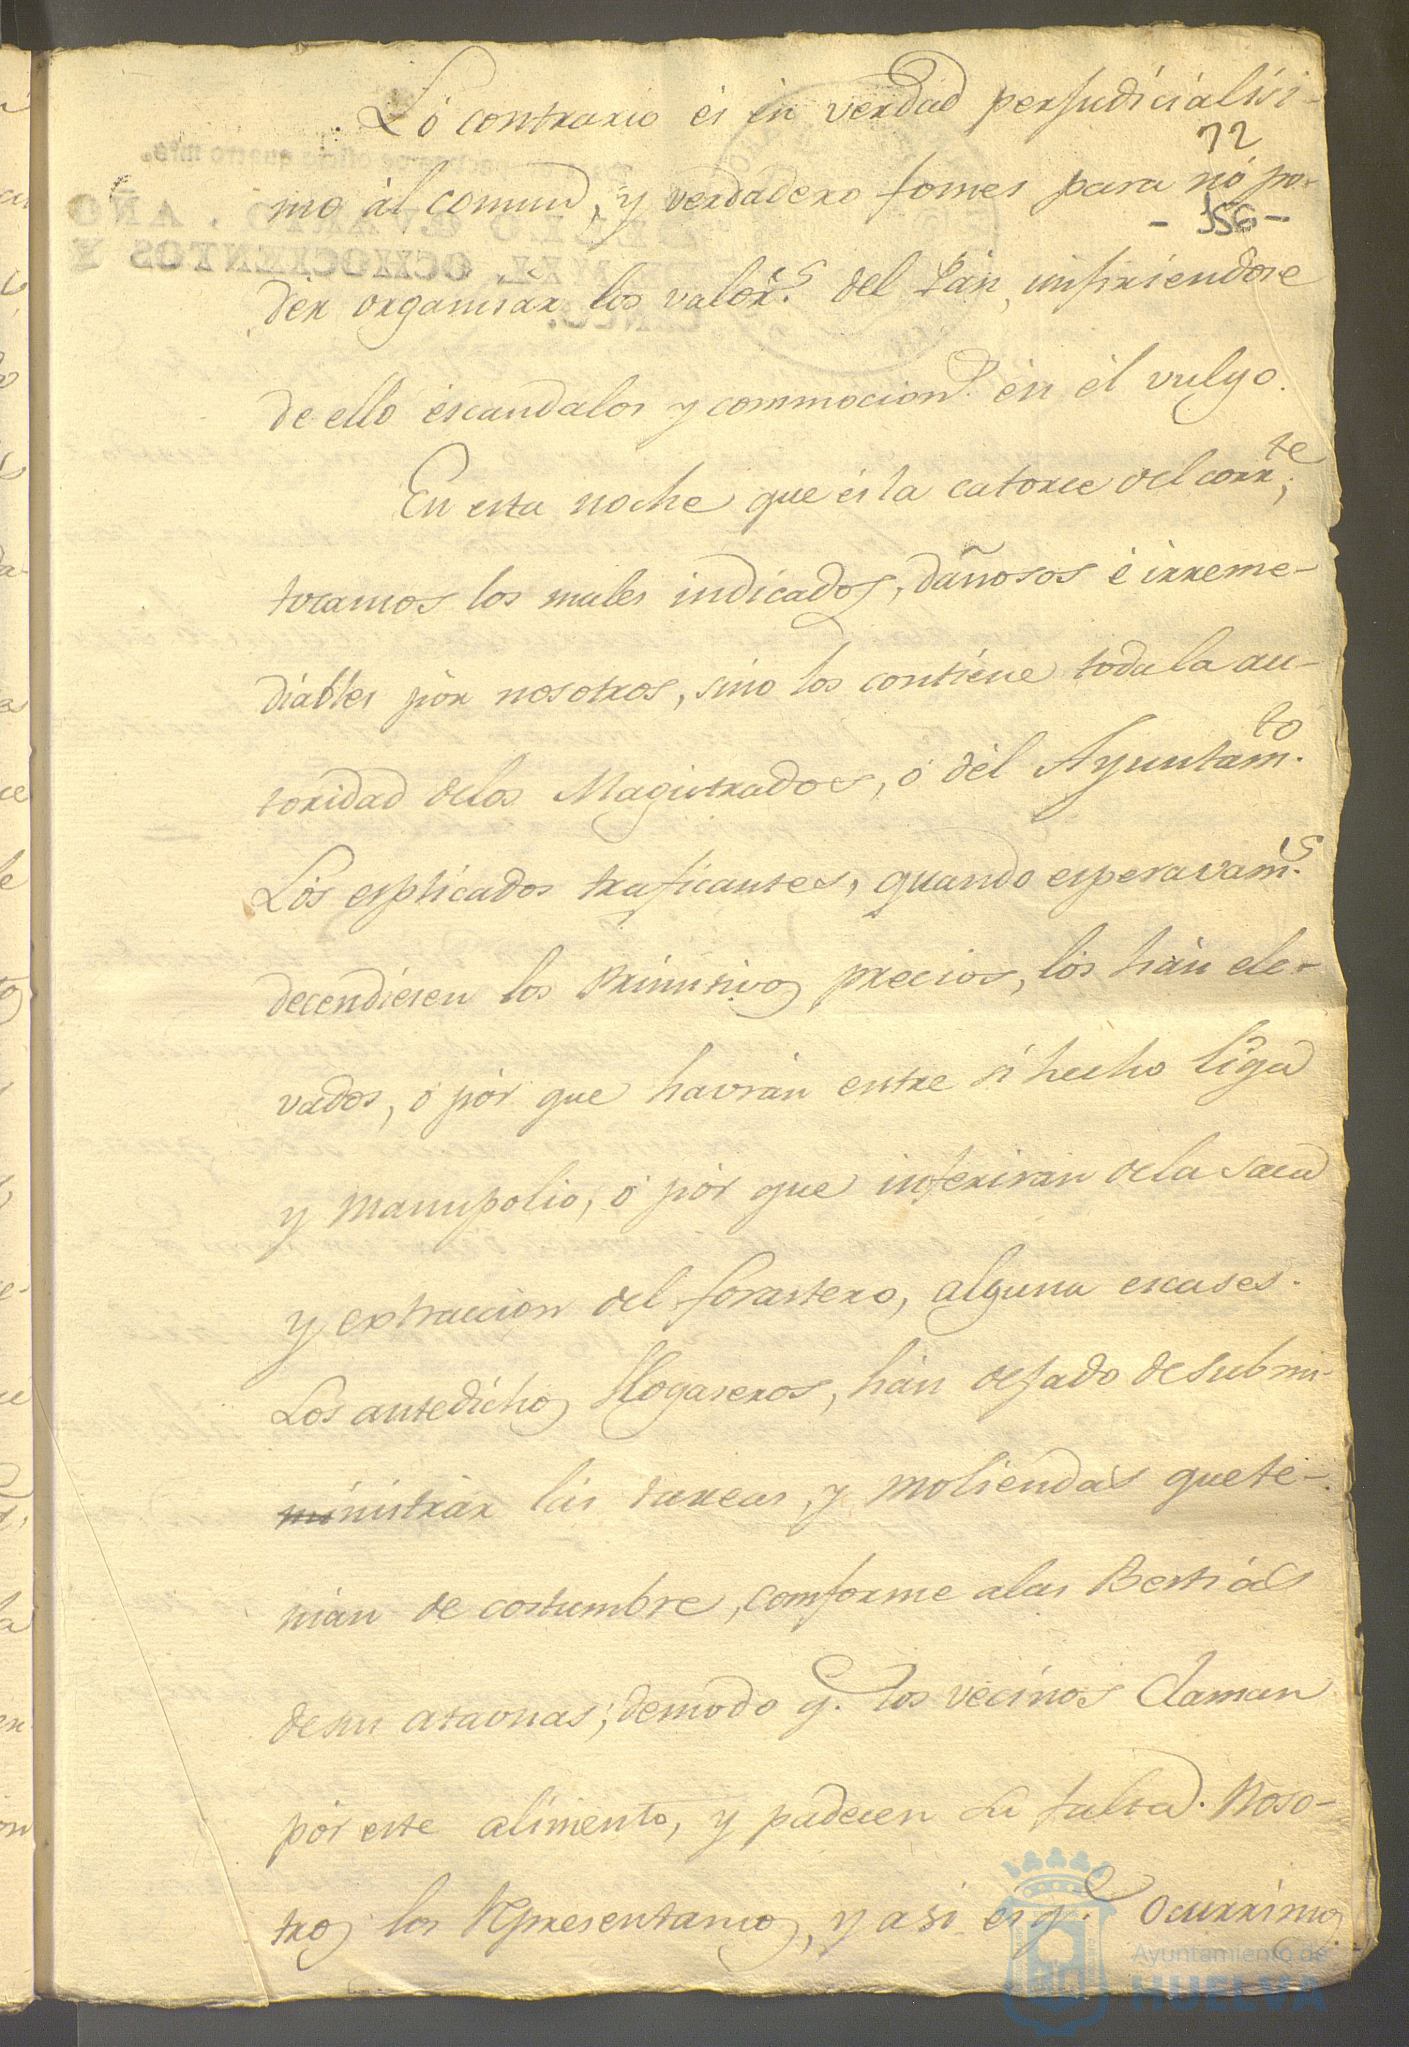 Lo contrario es en verdad perjudicialisi-
72
mo al comun, y verdadero fomes para no po-
- 156 -
der organisar los valor.s del Pan, infiriendose
de ello escandalos y commocion.s en el vulgo.
En esta noche que es la catorce del corr.te,
tocamos los males indicados, dañosos é irreme-
diables por nosotros, sino los contiene toda la au-
toridad delos Magistrados, ó del Ayuntam.to
Los esplicados traficantes, quando esperavam.s
decendiesen los primitivos precios, los han ele-
vados, ó por que havrán entre si hecho liga
y manupolio, ó por que inferiran dela saca
y extraccion del forastero, alguna escases.
Los antedichos Hogaseros, han dejado de submi-
nistrar las tareas, y moliendas que te-
nian de costumbre, comforme alas Bestias
desus ataonas; demodo q.e los vecinos claman
por este alimento, y padecen su falta. Noso-
tros los Representamos, y asi es q.e ocurrimos
Ayuntamiento de
HUELVA